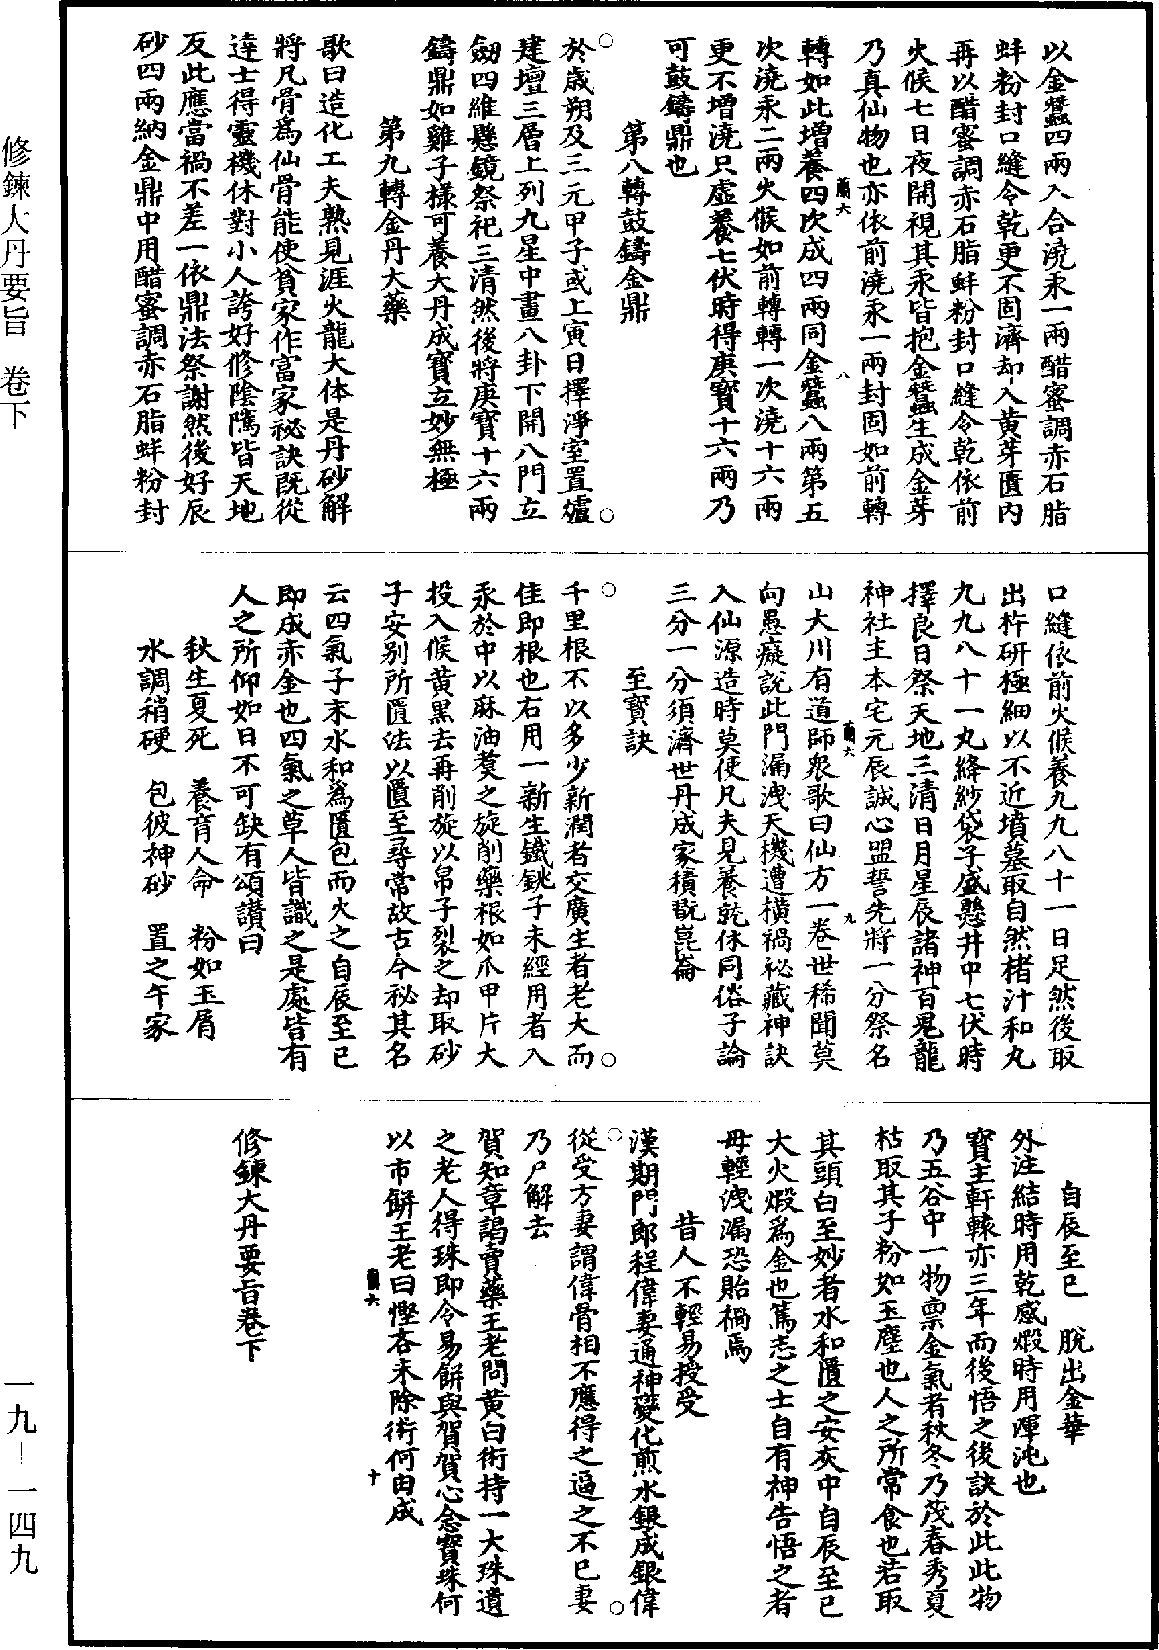 修鍊大丹要旨　卷下
一九—一四九
以金蠶四兩入合澆汞一兩醋蜜調赤石脂
蚌粉封口縫令乾更不固濟却入黃芽匱内
再以醋蜜調赤石脂蚌粉封口縫令乾依前
火候七日夜開視其汞皆抱金蠶生成金芽
乃真仙物也亦依前澆汞一兩封固如前轉
轉如此增養四次成四兩同金蠶八兩第五
次澆汞二兩火候如前轉轉一次澆十六兩
更不增澆只虛養七伏時得庚寶十六兩乃
可鼓鑄鼎也
第八轉鼓鑄金鼎
於歲朔及三元甲子或上寅日擇淨室置爐
建壇三層上列九星中畫八卦下開八門立
劒四維懸鏡祭祀三清然後將庚寶十六兩
鑄鼎如雞子樣可養大丹成寶立妙無極
第九轉金丹大藥
歌曰造化工夫熟見涯火龍大体是丹砂解
將凡骨爲仙骨能使貧家作富家祕訣既從
達士得靈機休對小人誇好修陰隲皆天地
反此應當禍不差一依鼎法祭謝然後好辰
砂四兩納金鼎中用醋蜜調赤石脂蚌粉封
口縫依前火候養九九八十一日足然後取
出杵研極細以不近墳墓取自然楮汁和丸
九九八十一丸絳紗袋子盛懸井中七伏時
擇良日祭天地三清日月星辰諸神百鬼龍
神社主本宅元辰誠心盟誓先將一分祭名
山大川有道師衆歌曰仙方一卷世稀聞莫
向愚癡說此門漏洩天機遭橫禍祕藏神訣
入仙源造時莫使凡夫見養乾休同俗子論
三分一分須濟世丹成家積翫崑崙
至寶訣
千里根不以多少新潤者交廣生者老大而
佳即根也右用一新生鐵銚子未經用者入
汞於中以麻油煑之旋削藥根如爪甲片大
投入候黄黑去再削旋以帛子裂之却取砂
子安别所匱法以匱至尋常故古今祕其名
云四氣子末水和為匱包而火之自辰至巳
即成赤金也四氣之草人皆識之是處皆有
人之所仰如日不可缺有頌讚曰
秋生夏死　養育人命　粉如玉屑
水調稍硬　包彼神砂　置之午家
自辰至巳　脫出金華
外注結時用乾感煅時用渾沌也
寶主軒轅亦三年而後悟之後訣於此此物
乃五谷中一物禀金氣者秋冬乃茂春秀夏
枯取其子粉如玉塵也人之所常食也若取
其頭白至妙者水和匱之安灰中自辰至巳
大火煅爲金也篤志之士自有神告悟之者
毋輕洩漏恐貽禍焉
昔人不輕易授受
漢期門郎程偉妻通神變化煎水銀成銀偉
從受方妻謂偉骨相不應得之逼之不已妻
乃尸解去
賀知章謁賣藥王老問黄白術持一大珠遺
之老人得珠即令易餅與賀賀心念寳珠何
以市餅王老曰慳吝未除術何由成
修鍊大丹要旨卷下